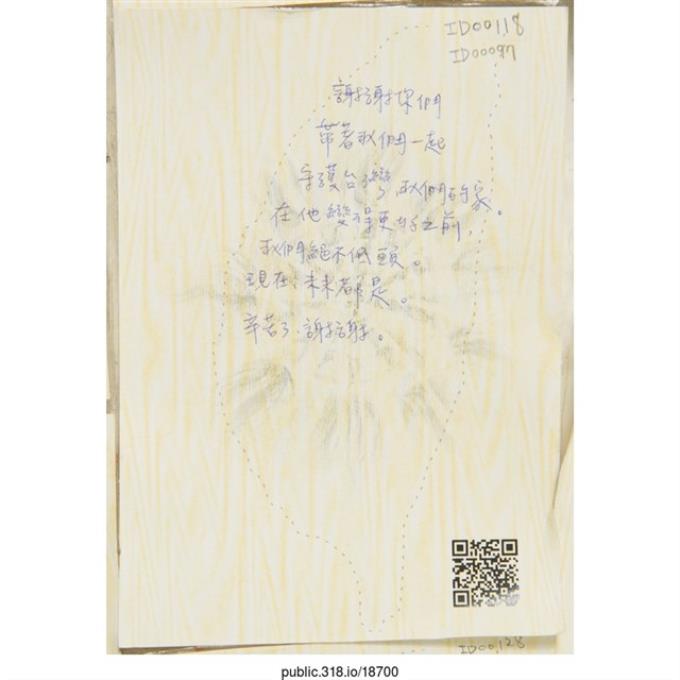 ID00118
ID00097
謝謝你們
帶著我們一起
守護台灣，我們的家。
在他變得更好之前，
我們絕不低頭。
現在、未來都是。
辛苦了、謝謝。
ID00128
public.318.io/18700